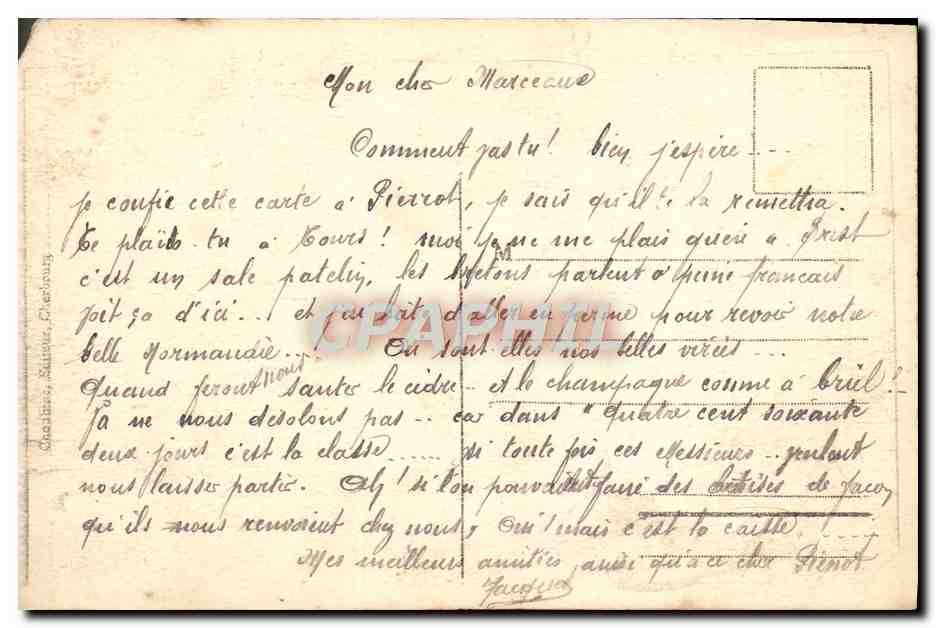 Mon cher Marceau
Comment vas tu! bien j'espère....
je confie cette carte à Pierrot, je sais qu'il te la remettra.
Te plais-tu à Tours! moi je ne me plais guère à Brest
c'est un sale patelin, les bretons parlent à peine français
d'ici... et j'ai hâte d'aller en perme pour revoir notre
belle Normandie.... Ou sont elles nos belles virées...
Quand feront nous sauter le cidre et le champagne comme à !
ne nous désolons pas.. car dans "quatre cent soixante
deux jours c'est la classe..... si toute fois ces Messieurs..
nous laisser partir. Ah! si l'on pouvait faire des bêtises de façon
qu'ils nous renvoient chez nous, Oui! mais c'est la caisse.....
Mes meilleurs amitiés ainsi qu'à ce cher Pierrot
Jacques
CPAPHIL
M
Cherbourg